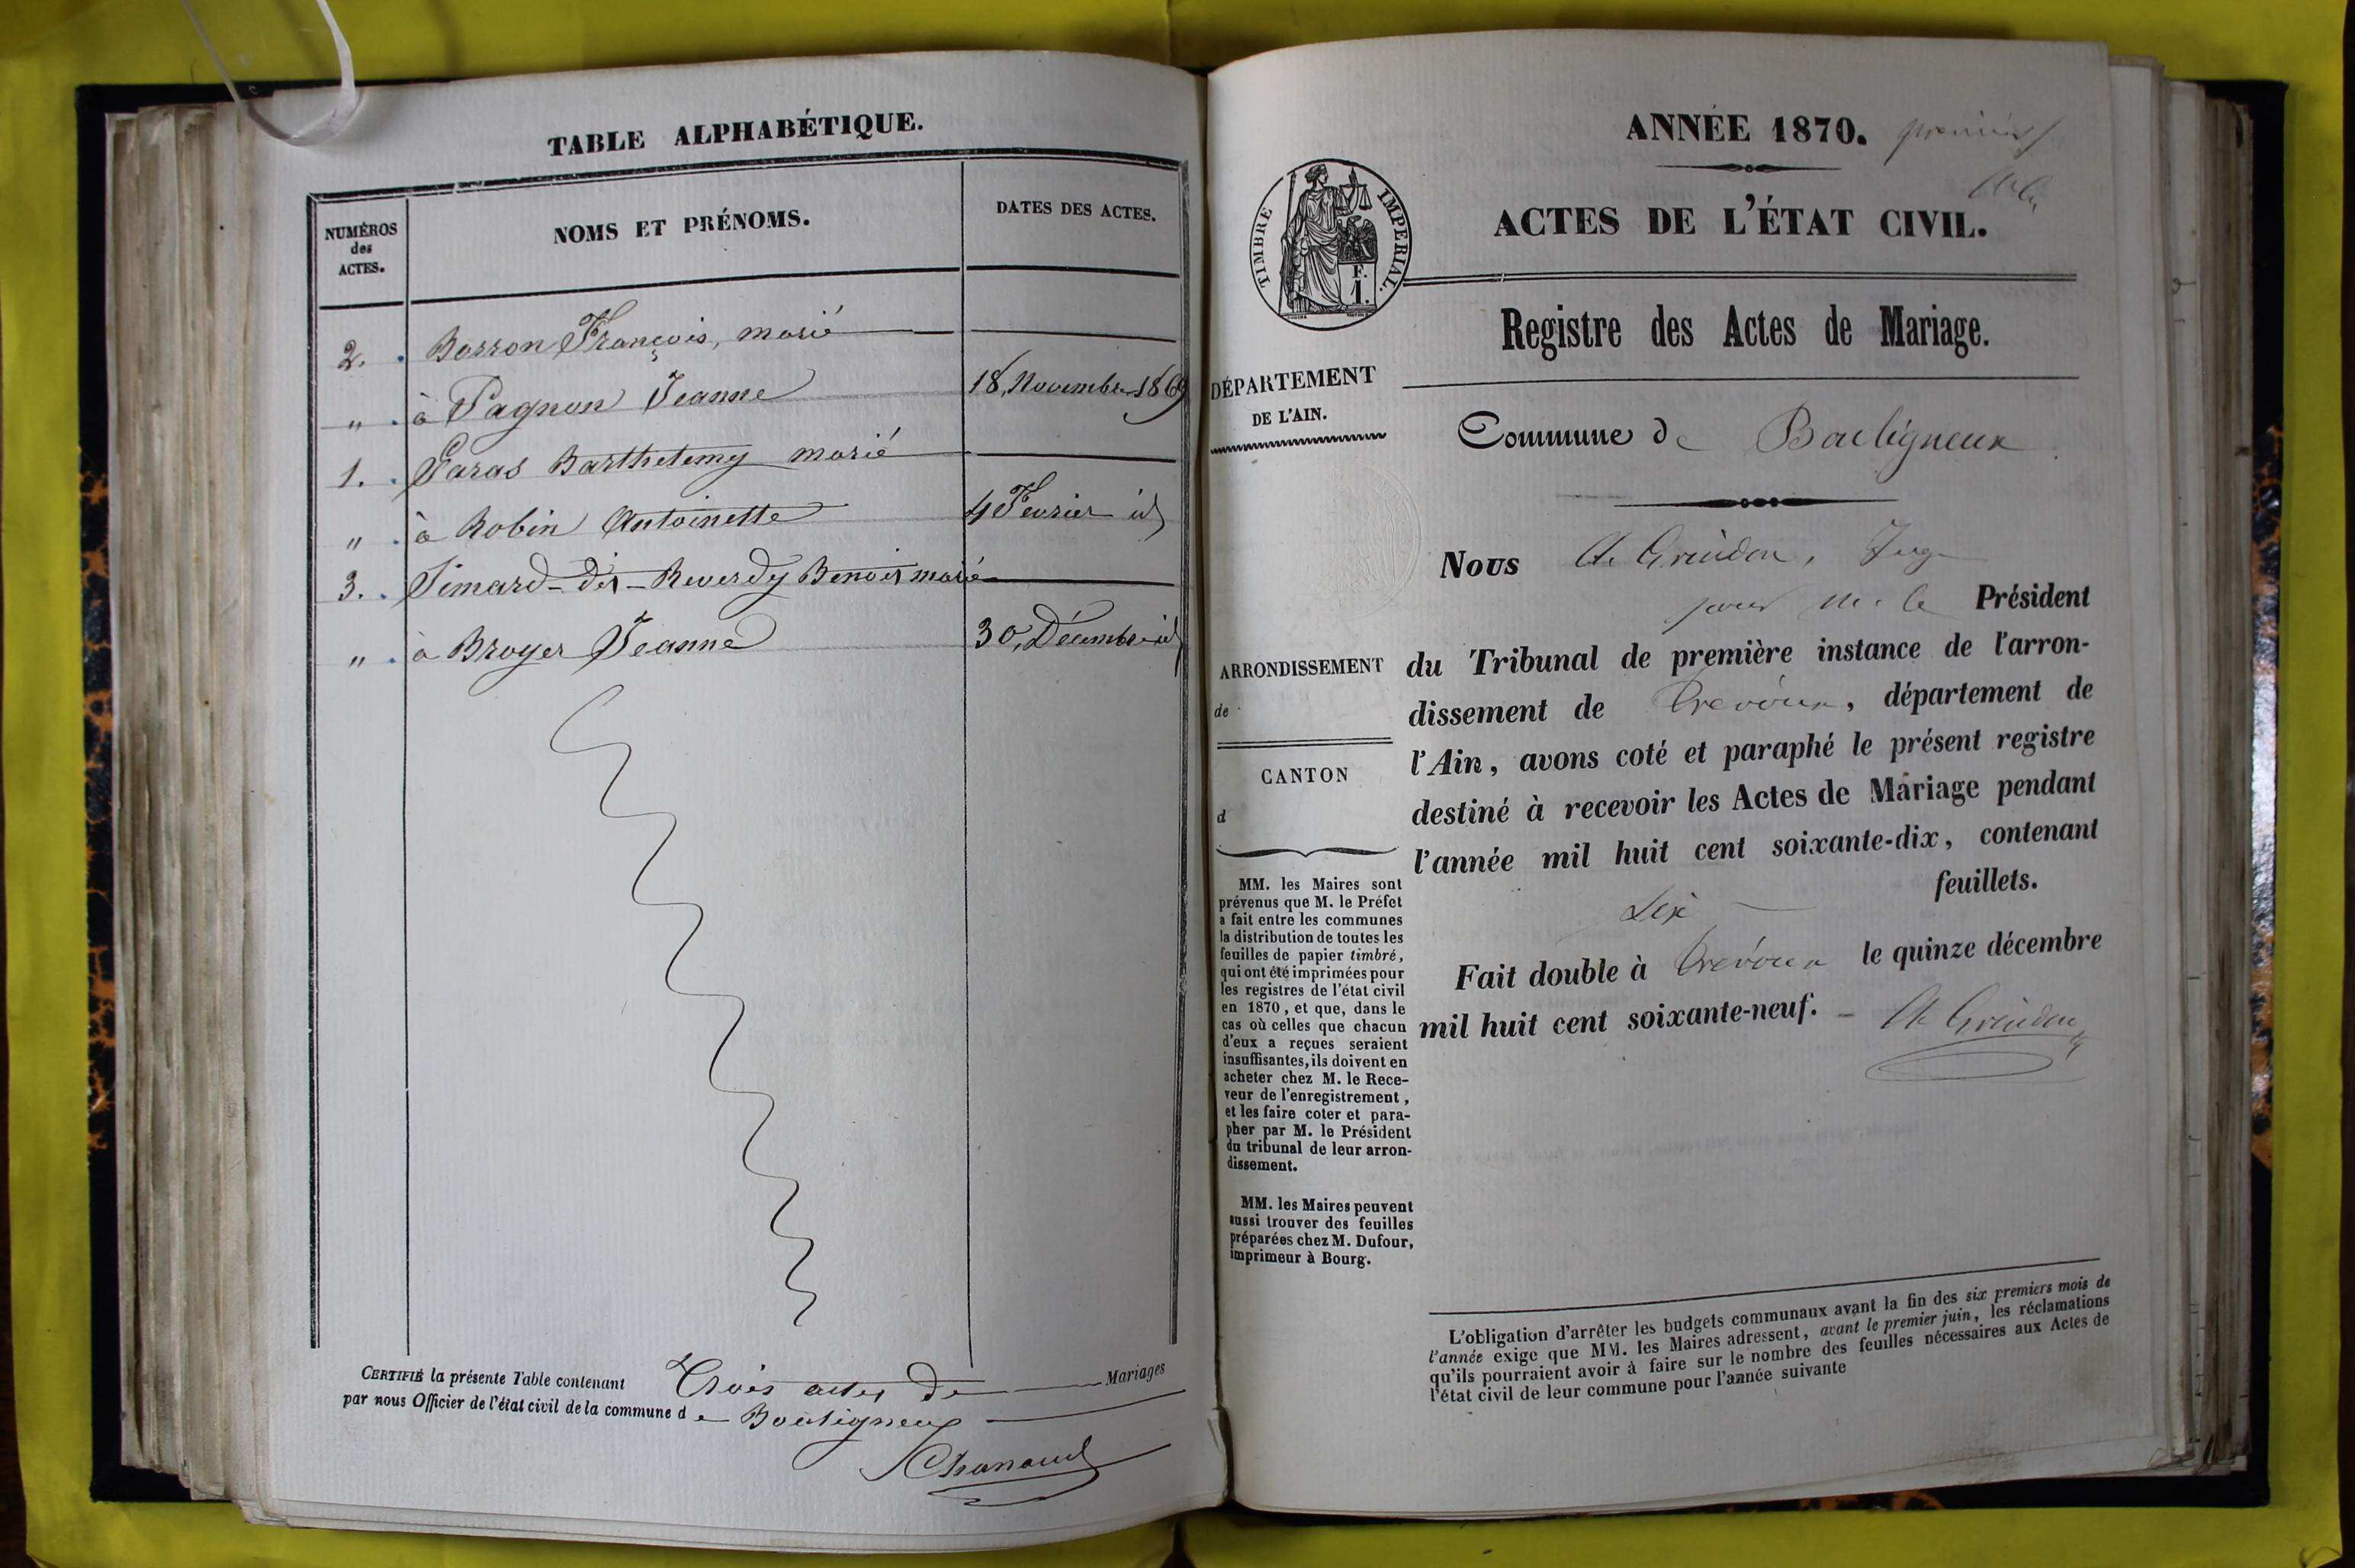 TABLE ALPHABÉTIQUE.
NUMÉROS
des
ACTES.
NOMS ET PRÉNOMS.
DATES DES ACTES.
2. Borron François, marié
" à Pagnon Jeanne 18, Novembre 1869
1. Garas Barthelemy marié
" à Robin Antoinette 4 Fevrier id
3. Simard-dit-Reverdy Benoit marié
" à Broyer Jeanne 30, Décembre id
CERTIFIÉ la présente Table contenant Trois actes de Mariages
par nous Officier de l'état civil de la commune de Bouligneux
Chanaud
ANNÉE 1870. premier
ACTES DE L'ÉTAT CIVIL.
TIMBRE IMPERIAL.
F.
1.
Registre des Actes de Mariage.
DÉPARTEMENT
DE L'AIN.
Commune de Bouligneux
ARRONDISSEMENT
de
CANTON
d
MM. les Maires sont
prévenus que M. le Préfet
a fait entre les communes
la distribution de toutes les
feuilles de papier timbré,
qui ont été imprimées pour
les registres de l'état civil
en 1870, et que, dans le
cas où celles que chacun
d'eux a reçues seraient
insuffisantes, ils doivent en
acheter chez M. le Rece-
veur de l'enregistrement,
et les faire coter et para-
pher par M. le Président
du tribunal de leur arron-
dissement.
MM. les Maires peuvent
aussi trouver des feuilles
préparées chez M. Dufour,
imprimeur à Bourg.
Nous A. Greindon, Juge
pour M. le Président
du Tribunal de première instance de l'arron-
dissement de Trévoux, département de
l'Ain, avons coté et paraphé le présent registre
destiné à recevoir les Actes de Mariage pendant
l'année mil huit cent soixante-dix, contenant
six feuillets.
Fait double à Trévoux le quinze décembre
mil huit cent soixante-neuf. - A. Greindon
L'obligation d'arrêter les budgets communaux avant la fin des six premiers mois de
l'année exige que MM. les Maires adressent, avant le premier juin, les réclamations
qu'ils pourraient avoir à faire sur le nombre des feuilles nécessaires aux Actes de
l'état civil de leur commune pour l'année suivante